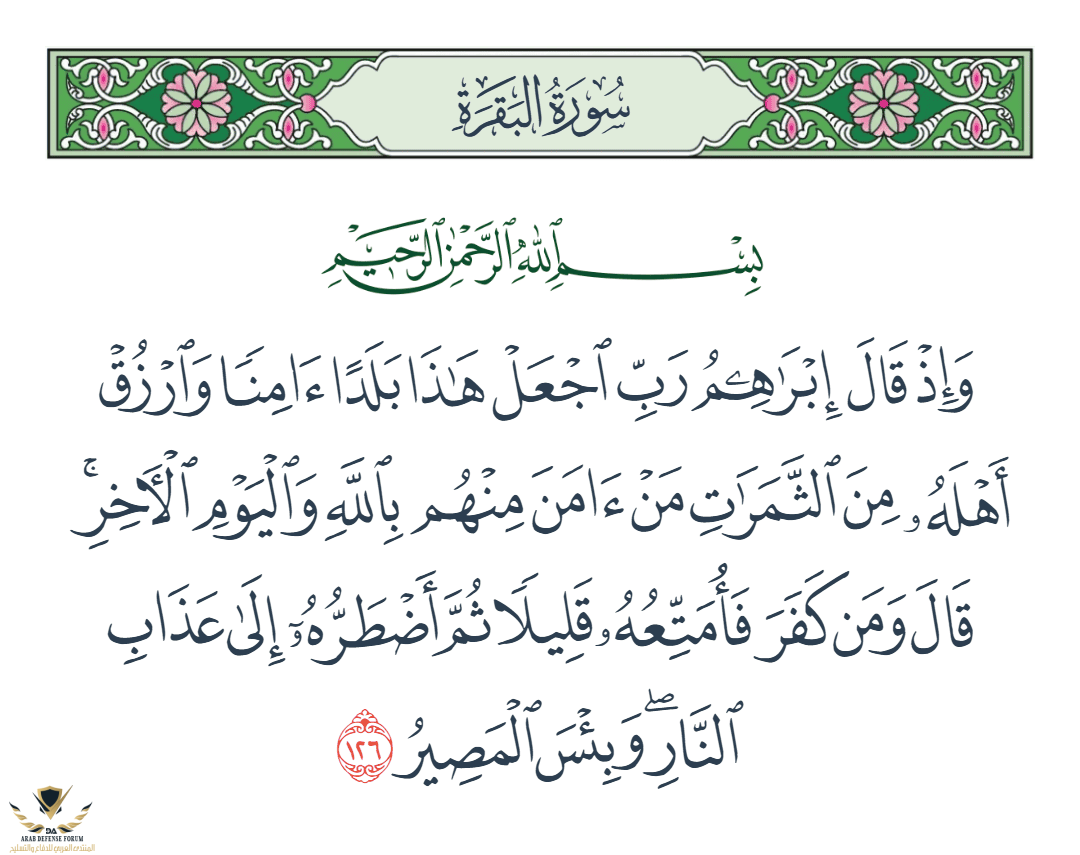 سُورَةُ البَقَرَةِ
بِسْمِ ٱللَّهِ ٱلرَّحْمَٰنِ ٱلرَّحِيمِ
وَإِذْ قَالَ إِبْرَٰهِـۧمُ رَبِّ ٱجْعَلْ هَٰذَا بَلَدًا ءَامِنًا وَٱرْزُقْ
أَهْلَهُۥ مِنَ ٱلثَّمَرَٰتِ مَنْ ءَامَنَ مِنْهُم بِٱللَّهِ وَٱلْيَوْمِ ٱلْأَخِرِ ۚ
قَالَ وَمَن كَفَرَ فَأُمَتِّعُهُۥ قَلِيلًا ثُمَّ أَضْطَرُّهُۥٓ إِلَىٰ عَذَابِ
ٱلنَّارِ ۖ وَبِئْسَ ٱلْمَصِيرُ ١٢٦
DA
ARAB DEFENSE FORUM
المنتدى العربي للدفاع والتسليح